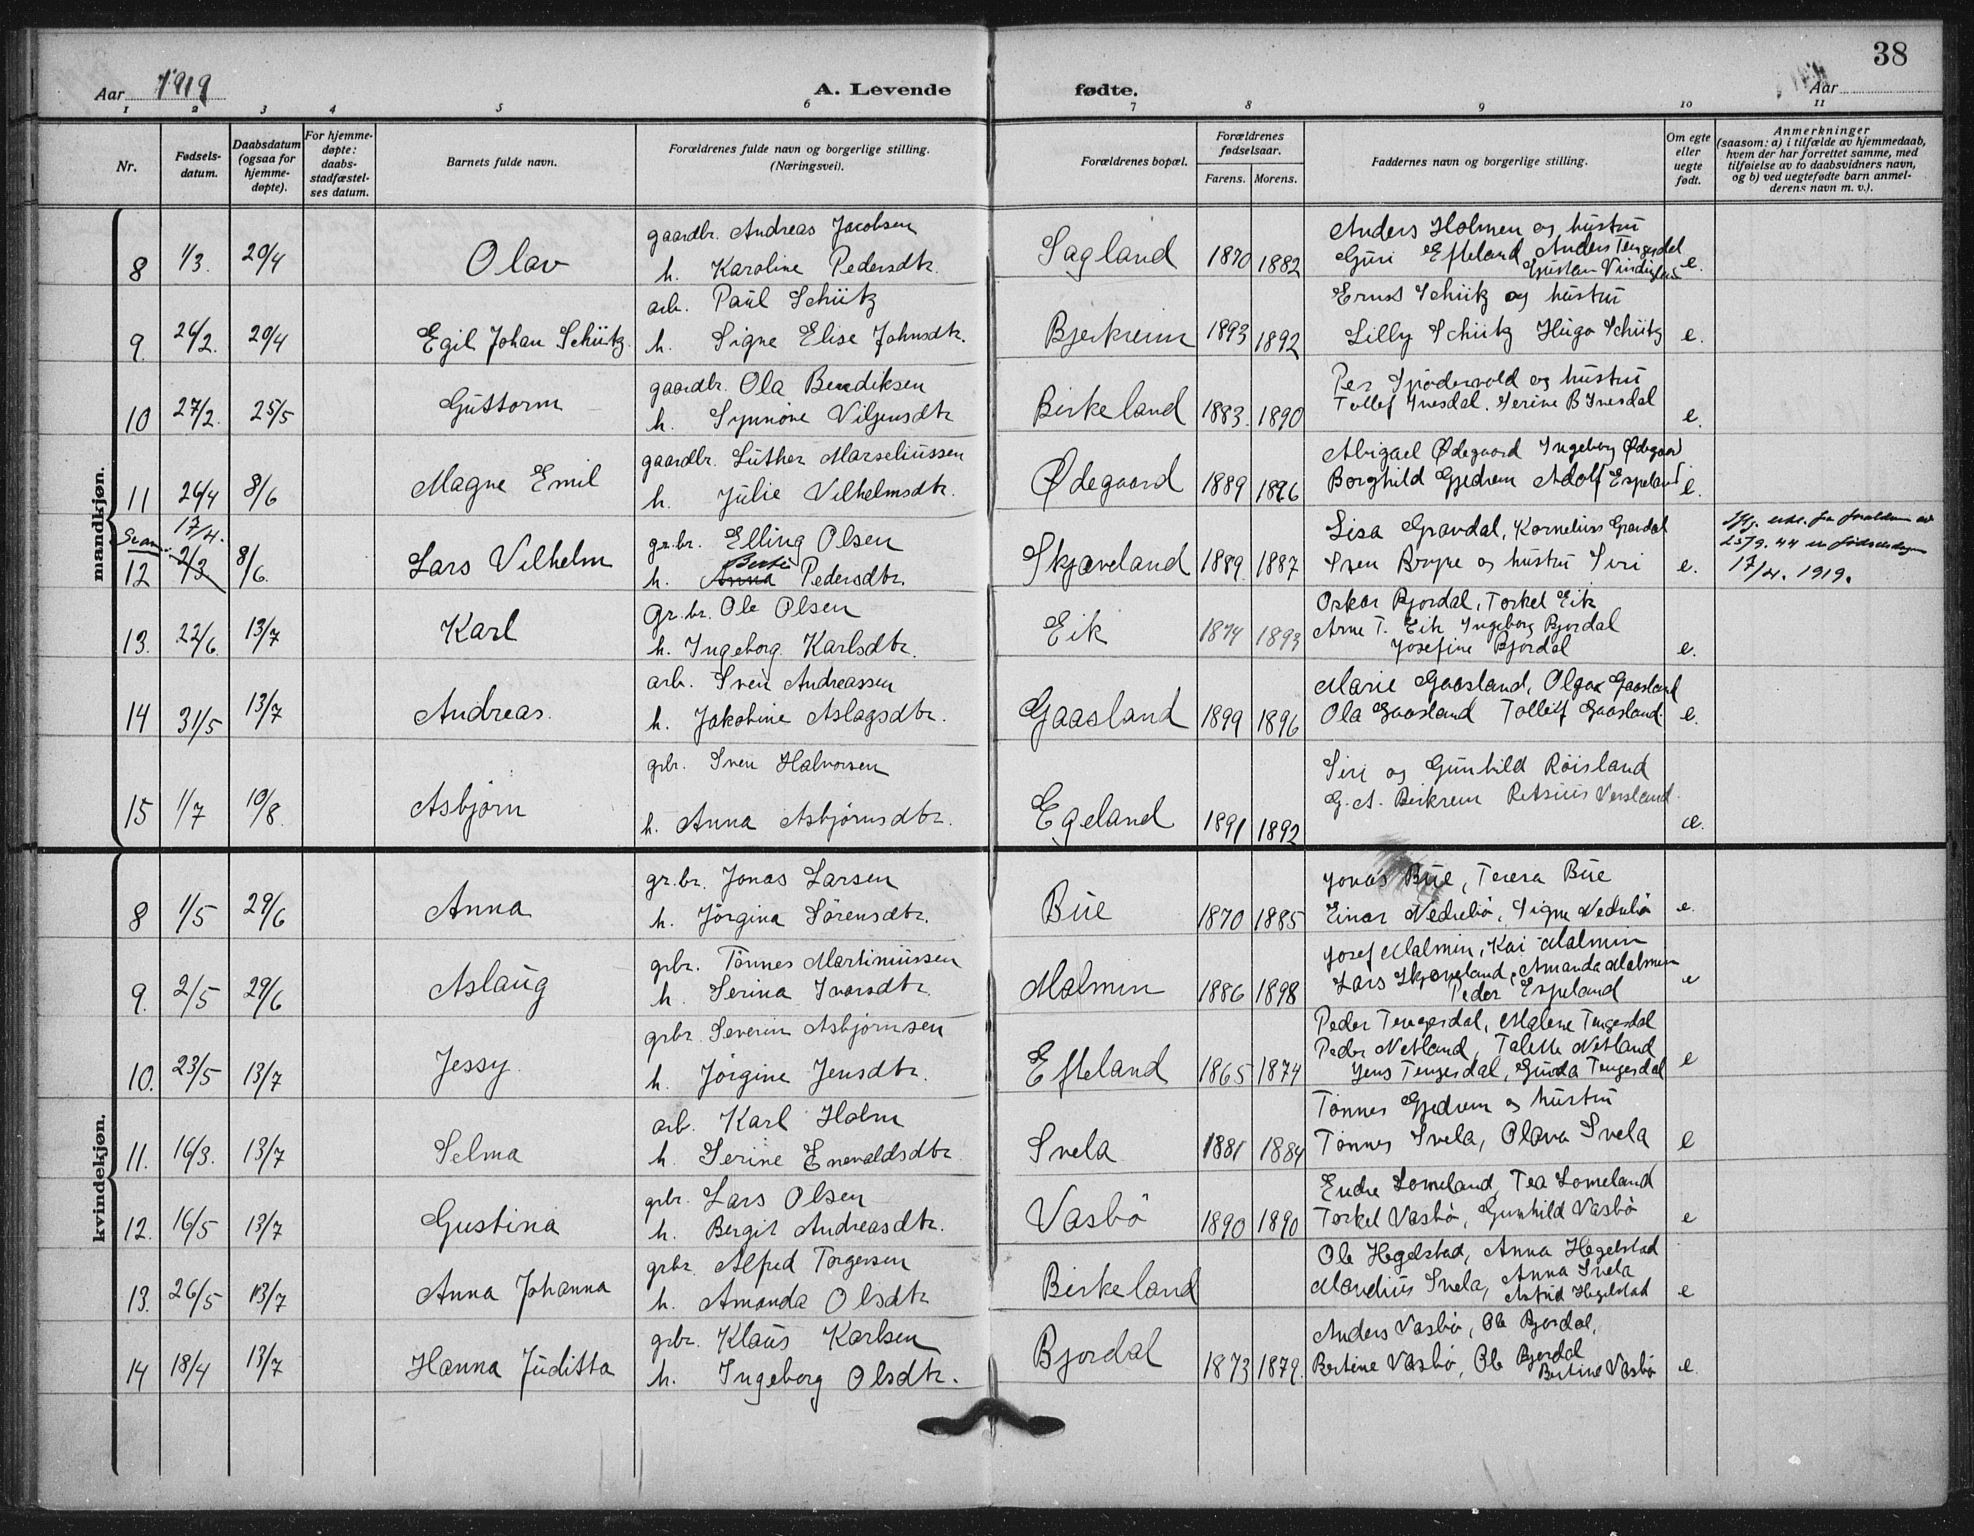 38
Aar 1919 A. Levende fødte. Aar
1 2 3 4 5 6 7 8 9 10 11
Nr. Fødsels-datum. Daabsdatum (ogsaa for hjemme-døpte). For hjemme-døpte: daabs-stadfæstel-ses datum. Barnets fulde navn. Forældrenes fulde navn og borgerlige stilling. (Næringsvei). Forældrenes bopæl. Forældrenes fødselsaar. Farens. Morens. Faddernes navn og borgerlige stilling. Om egte eller uegte født. Anmerkninger (saasom: a) i tilfælde av hjemmedaab, hvem der har forrettet samme, med tilføielse av to daabsvidners navn, og b) ved uegtefødte barn anmel-derens navn m. v.).
mandkjøn.
gaardbr. Andreas Jacobsen Anders Holmen og hustru
8 1/3. 20/4 Olav h. Karoline Pedersdtr. Sagland 1870 1882 Guri Efteland Anders Tengesdal e.
arb. Paul Schütz Ernst Schütz og hustru
9. 26/2. 20/4 Egil Johan Schütz. h. Signe Elise Johnsdtr. Bjerkreim 1893 1892 Lilly Schütz Hugo Schütz e.
gaardbr. Ola Bendiksen Per og hustru
10 27/2. 25/5 Guttorm h. Synnöve Birkeland 1883. 1890 Tollef Ivesdal. Serine B Ivesdal e.
gaardbr. Luther Marseliussen Abigael Ødegaard Ingeborg Ødegaard
11 26/4 8/6 Magne Emil h. Julie Vilhelmsdtr. Ødegaard 1889 1896 Borghild Gjedrem Adolf Espeland e.
17/4. gr.br. Elling Olsen Lisa Gravdal, Kornelius Gravdal
12 2/3 8/6. Lars Vilhelm h. Anna Berte Pedersdtr. Skjæveland 1889. 1887 Sven og hustru Siri e. 25/9. 44 17/4. 1919.
gr.br. Ole Olsen Oskar Bjordal, Torkel Eik
13. 22/6. 13/7 Karl h. Ingeborg Karlsdtr. Eik 1874 1893 Arne T. Eik Ingeborg Bjordal
Josefine Bjordal e.
arb. Sven Andreassen Marie Gaasland, Olga Gaasland
14 31/5 13/7 Andreas. h. Jakobine Aslagsdtr. Gaasland 1899 1896 Ola Gaasland Tolleif Gaasland. e.
grbr. Sven Halvorsen Siri og Gunhild Röisland
15 1/7 10/8. Asbjörn h. Anna Asbjörnsdtr. Egeland 1891 1892 G. A. Birkrem Versland e.
kvindekjøn.
gr.br. Jonas Larsen Jonas Bue, Teresa Bue
8 1/5 29/6 Anna h. Jörgina Sörensdtr. Bue 1870 1885 Einar Nedrebö, Signe Nedrebö e.
grbr. Tönnes Martinussen Josef Malmin, Kai Malmin
9. 2/5 29/6 Aslaug h. Serina Ivarsdtr. Malmin 1886 1898 Lars Skjæveland, Amanda Malmin
Peder Espeland e
grbr. Severin Asbjörnsen Peder Tengesdal, Malene Tengesdal
10. 23/5 13/7 Jessy. h. Jörgine Jensdtr. Efteland 1865 1874 Peder Netland, Talette Netland
Jens Tengesdal, Tengesdal e
arb. Karl Holm Tönnes Gjedrem og hustru
11. 16/3. 13/7 Selma h. Serine Enevaldsdtr. Svela 1881 1884 Tönnes Svela, Olava Svela e
grbr. Lars Olsen Endre Lomeland Tea Lomeland
12. 16/5 13/7 Gustina h. Bergit Andreasdtr. Vasbö 1890 1890 Torkel Vasbö, Gunhild Vasbö e
grbr. Alfred Torgersen Ole Hegelstad, Anna Hegelstad
13. 26/5 13/7 Anna Johanna h. Amanda Olsdtr. Birkeland Mandius Svela, Anna Svela
Astrid Hegelstad e
grbr. Klaus Karlsen Anders Vasbö, Ole Bjordal,
14 18/4 13/7 Hanna Juditta h. Ingeborg Olsdtr. Bjordal 1873 1879. Bertine Vasbö, Ole Bjordal
Bertine Vasbö e.